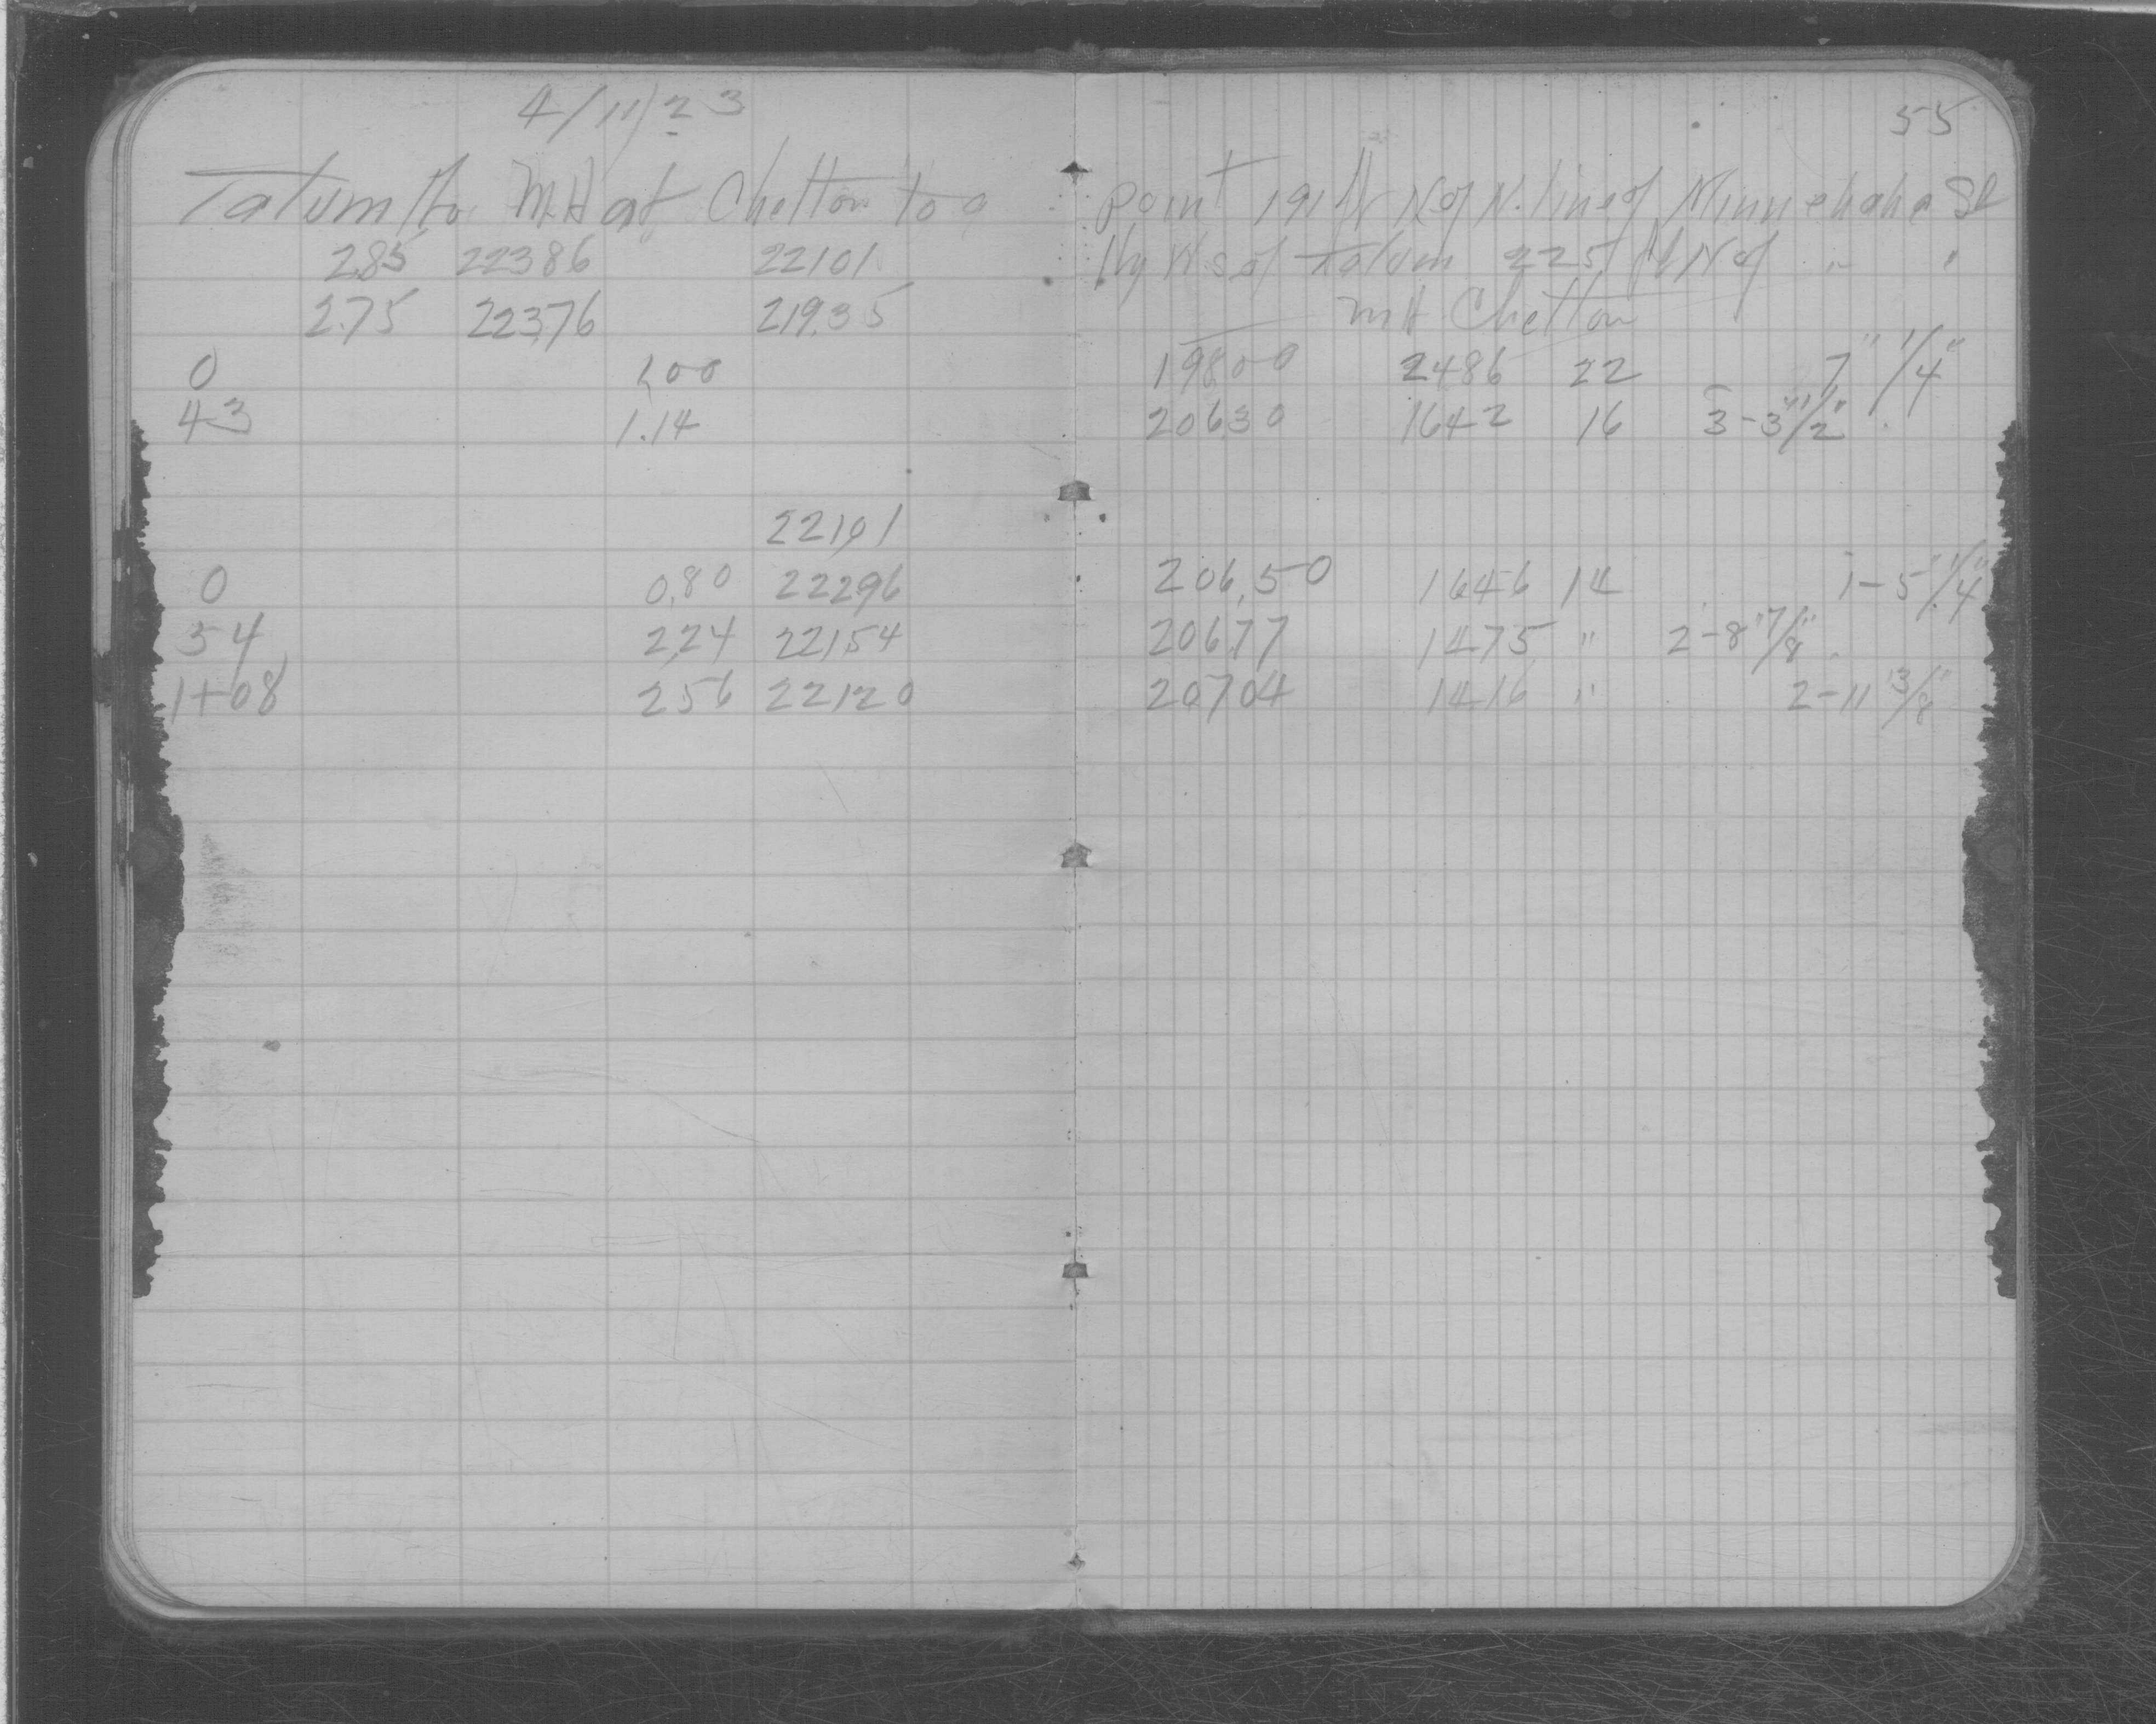 4/11/23
55
Tatum fr. M.H at Chelton to a point 191 ft N of N. line of Minnehaha St
285 22386 22101 Hy W.s of Tatum 225 ft N of " "
2.75 22376 219.35 MH Chelton
0 1,00 198,00 2486 22 7" 1/4"
43 1.14 206,30 1642 16 3-3" 1/2"
221,01
0 0,80 22296 206,50 1646 14 1-5" 1/4"
54 2,24 221,54 206,77 1475 " 2-8" 7/8"
1+08 256 22120 20704 1416 " 2-11" 3/8"